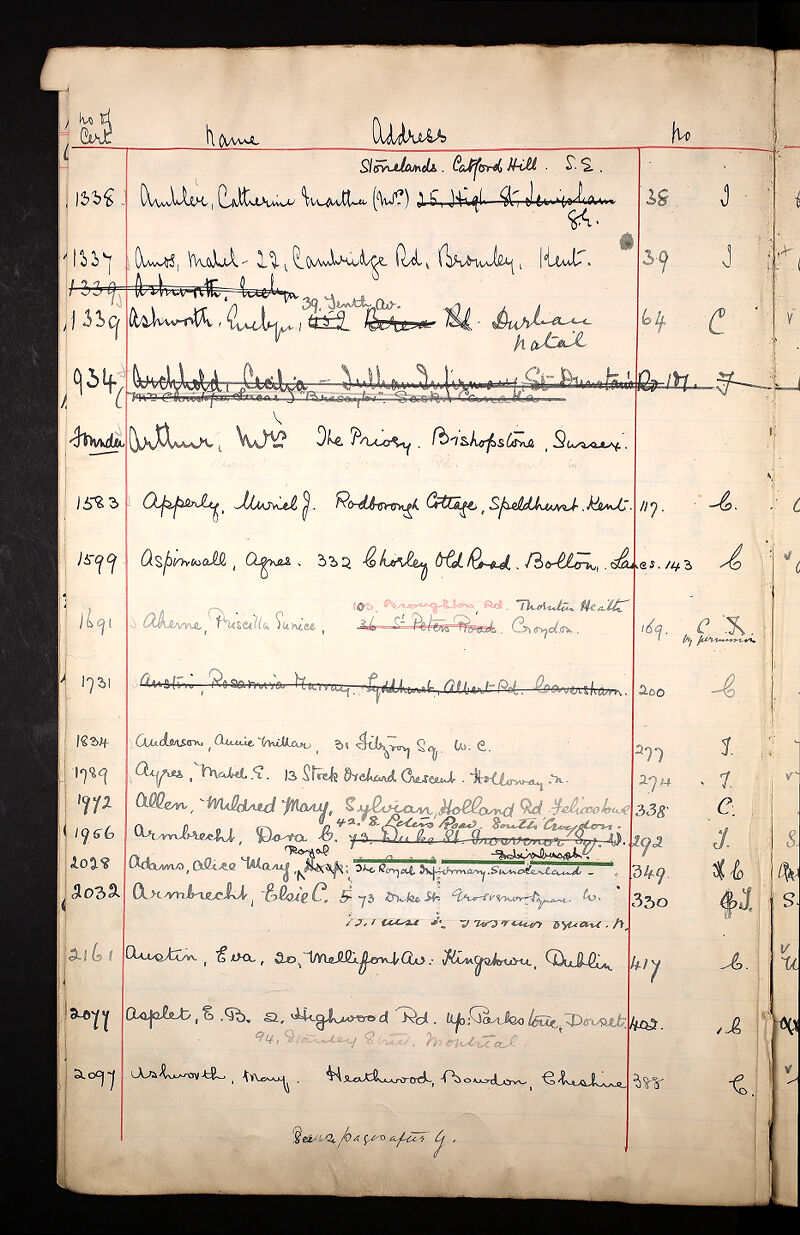 no of
Cert Name Address No
Stonelands. Catford Hill. S.E.
1338 Ambler, Catherine Martha (Mrs) 25, High St. Lewisham 38 I
S.E.
1337 Amos, Mabel - 22, Cambridge Rd, Bromley, Kent. 39 I
1339 Ashworth, Evelyn
39, Tenth Av.
1339 Ashworth, Evelyn, 452 Berea Rd. Durban 64 C
Natal
934 Archbold, Cecilia - Fulham Infirmary, St Dunstan's Rd 101. I
Mrs Christopher Lucas) "Bresaylor" Sask, Canada
Founder Arthur, Mrs The Priory. Bishopstone, Sussex.
1583 Apperly, Muriel J. Rodborough Cottage, Speldhurst. Kent. 117. C.
1599 Aspinwall, Agnes. 332 Chorley Old Road. Bolton, Lancs. 143 C
103, Broughton Rd. Thornton Heath
1691 Aherne, Priscilla Eunice, 36 St Peters Road. Croydon. 169. C I
by permission
1731 Austin, Rosamira Murray. Lyddhurst, Albert Rd. Caversham. 200 C
1834 Anderson, Annie Millar, 31 Fitzroy Sq. W.C. 277 I.
1789 Ayres, Mabel. E. 13 Stock Orchard Crescent. Holloway. N. 274 . I.
1972 Allen, Mildred Mary, Sylvian, Holland Rd. Felixstowe 338 C.
42, S. Peters Road, South Croydon.
1956 Armbrecht, Dora C. 73 Duke St. Grosvenor Sq. W. 292 I.
Royal Edinburgh.
2028 Adams, Alice Mary, The Royal Infirmary, Sunderland - 349. C
2032 Armbrecht, Elsie C. 73 Duke St. Grosvenor Square. W. 330 I.
73. Duke St. Grosvenor Square. W.
2161 Austin, Eva, 20, Mellifont Av: Kingstown, Dublin 417 C.
2077 Asplet, E. B. 2, Highwood Rd. Up: Parkstone, Dorset. 402. C
94, Stanley Street. Montreal.
2097 Ashworth, Mary. Heathwood, Bowdon, Cheshire 388 C.
See 2 pages after Y.